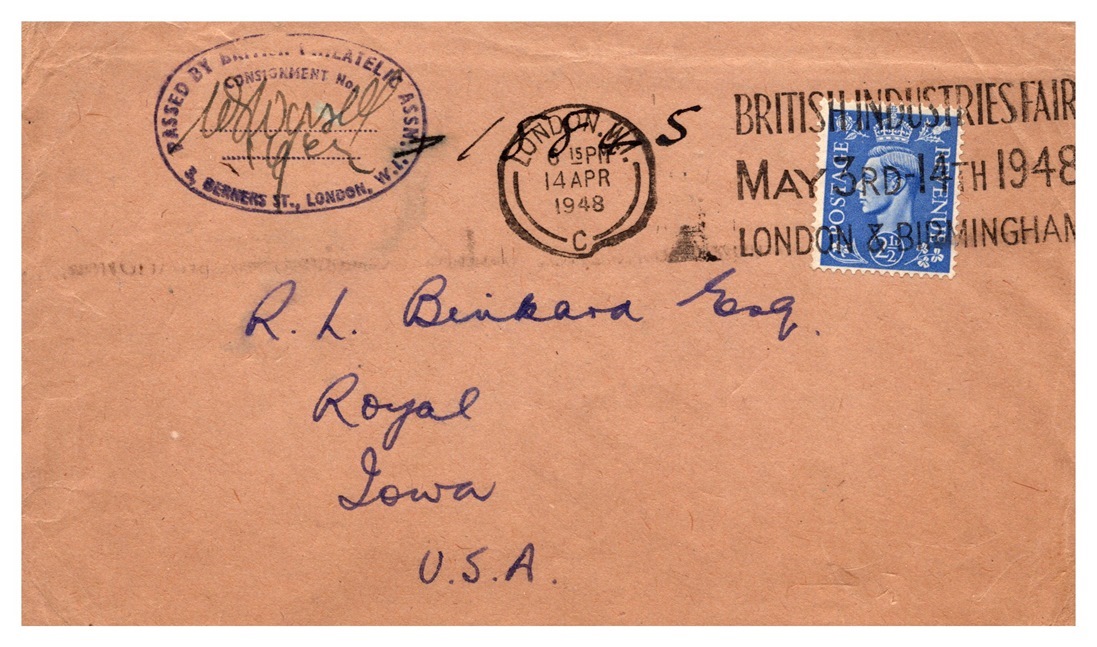 PASSED BY BRITISH PHILATELIC ASSN.
CONSIGNMENT No
3, BERNERS ST., LONDON, W.1.
LONDON. W.1.
6 15 PM
14 APR
1948
C
BRITISH INDUSTRIES FAIR
MAY 3RD-14TH 1948
LONDON & BIRMINGHAM
POSTAGE
REVENUE
2½
R. L. Beinkard Esq.
Royal
Iowa
U.S.A.